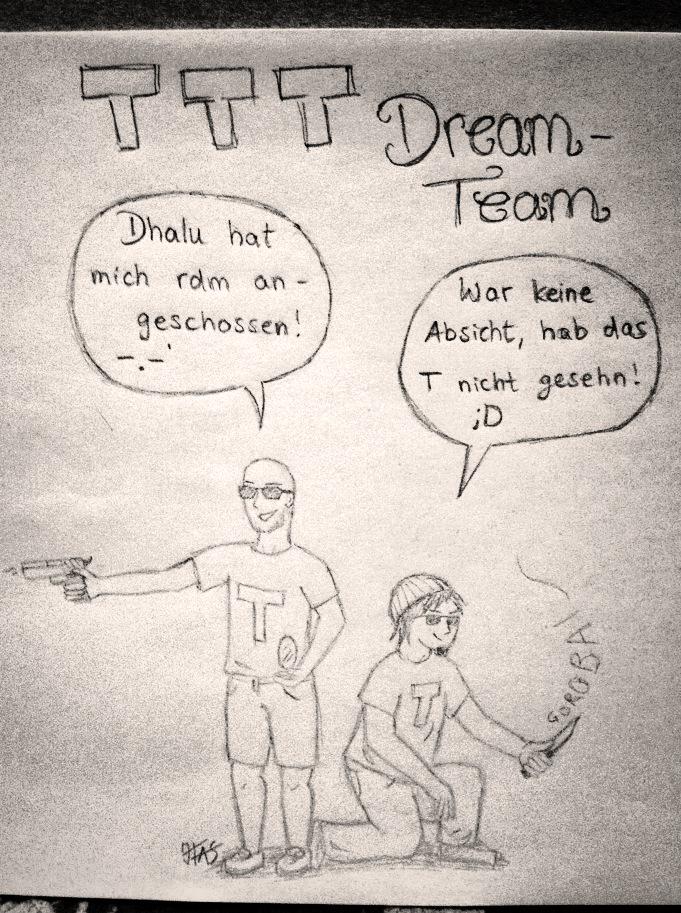 TTT Dream-
Team
Dhalu hat
mich rdm an-
geschossen!
-.-'
War keine
Absicht, hab das
T nicht gesehn!
;D
T
T
GOROBA
JHAS